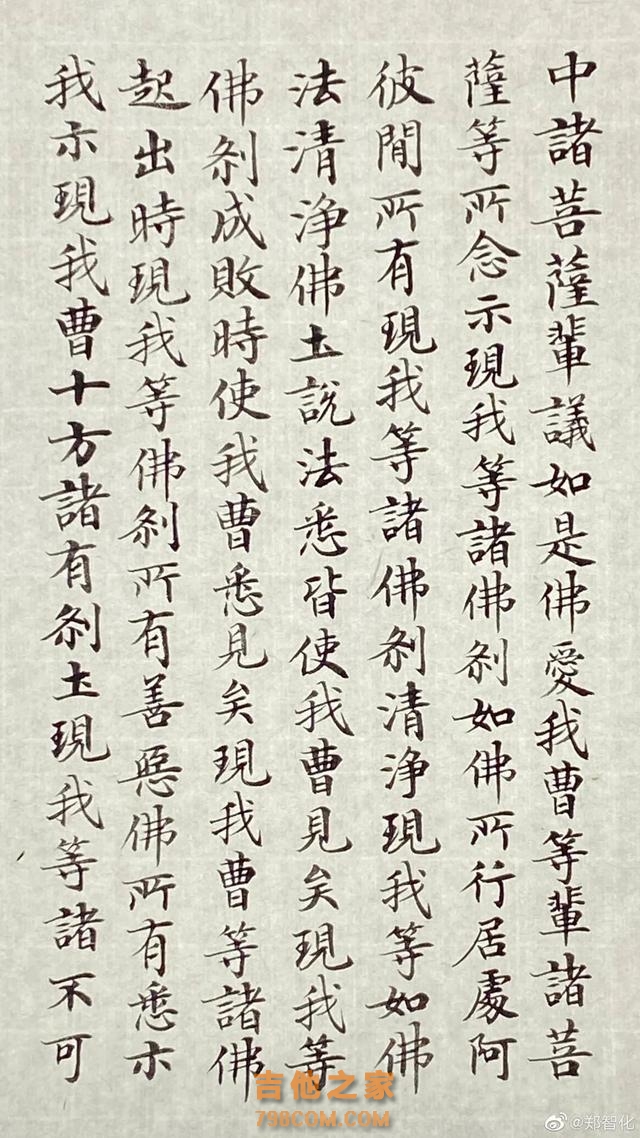 中諸菩薩輩議如是佛愛我曹等輩諸菩
薩等所念示現我等諸佛剎如佛所行居處阿
彼閒所有現我等諸佛剎清淨現我等如佛
法清淨佛土說法悉皆使我曹見矣現我等
佛剎成敗時使我曹悉見矣現我曹等諸佛
起出時現我等佛剎所有善惡佛所有悉示
我示現我曹十方諸有剎土現我等諸不可
吉他之家
798COM.COM
@郑智化